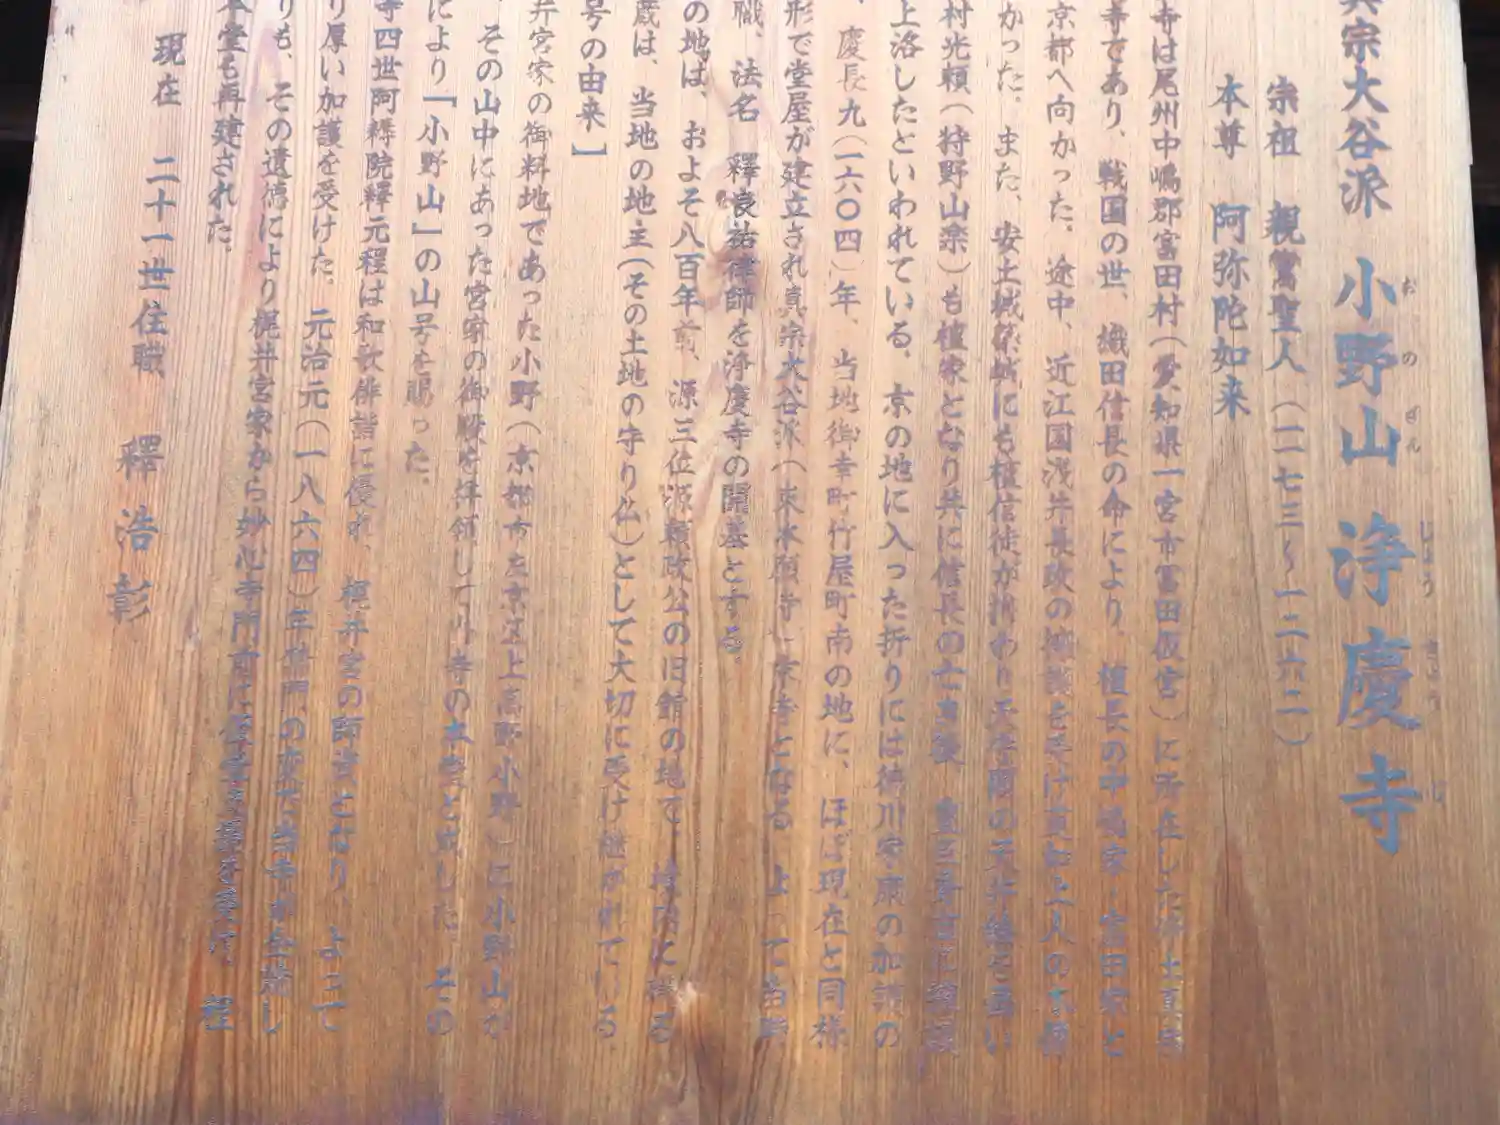 真宗大谷派 小野山 浄慶寺
おのざん じょうきょうじ
宗祖 親鸞聖人(一一七三〜一二六二)
本尊 阿弥陀如来
寺は尾州中嶋郡冨田村(愛知県一宮市冨田仮宮)に所在した
寺であり、戦国の世、織田信長の命により、信長の中嶋家・冨田家と
京都へ向かった。途中、近江国浅井長政の
かった。また、安土城築城にも檀信徒が携わり天守閣の天井絵を画い
村光頼(狩野山楽)も檀家となり共に信長の亡き後
上洛したといわれている。京の地に入った折りには徳川家康の加護の
、慶長九(一六〇四)年、当地御幸町竹屋町南の地に、ほぼ現在と同様
形で堂屋が建立され真宗大谷派(東本願寺)末寺となる。よって当時
職、法名 釋良祐律師を浄慶寺の開基とする。
の地は、およそ八百年前、源三位源頼政公の旧館の地で、境内に
蔵は、当地の地主(その土地の守り仏)として大切に受け継がれている
号の由来】
井宮家の御料地であった小野(京都市左京区上高野小野)に小野山が
、その山中にあった宮家の御殿を拝領し 寺の本堂と成した。その
により「小野山」の山号を賜った。
寺四世阿 院釋元程は和歌俳諧に優れ、梶井宮の師資となり、よって
り厚い加護を受けた。元治元(一八六四)年禁門の変で当寺が全焼し
りも、その遺徳により梶井宮家から妙心寺門前に を受け
本堂も再建された。
現在 二十一世住職 釋 浩 彰